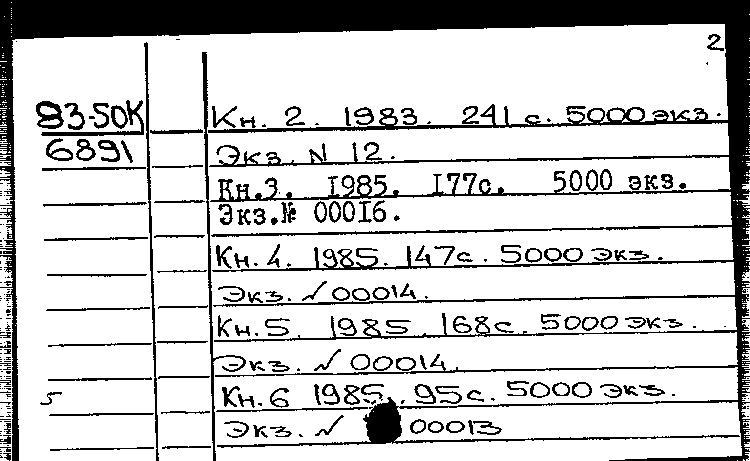 2
83-50К
6891
Кн. 2. 1983. 241 с. 5000 экз.
Экз. N 12.
Кн.3. 1985. 177с. 5000 экз.
Экз.№ 00016.
Кн. 4. 1985. 147с. 5000 экз.
Экз. N 00014.
Кн. 5. 1985. 168с. 5000 экз.
Экз. N 00014.
5 Кн. 6 1985. 95с. 5000 экз.
Экз. N 00013